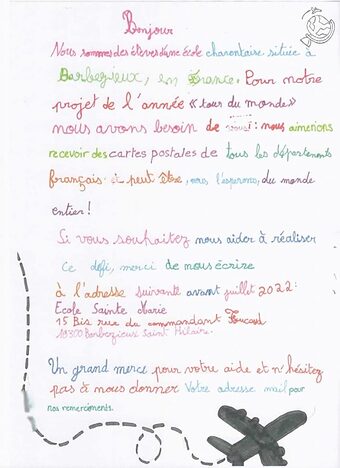 Bonjour
Nous sommes des élèves d'une école charentaise située à
Barbezieux, en France. Pour notre
projet de l'année « tour du monde »
nous avons besoin de vous : nous aimerions
recevoir des cartes postales de tous les départements
français et peut être, nous l'espérons, du monde
entier !
Si vous souhaitez nous aider à réaliser
ce défi, merci de nous écrire
à l'adresse suivante avant juillet 2022 :
Ecole Sainte Marie
15 Bis rue du commandant Foucaud
16300 Barbezieux Saint Hilaire.
Un grand merci pour votre aide et n'hésitez
pas à nous donner votre adresse mail pour
nos remerciements.